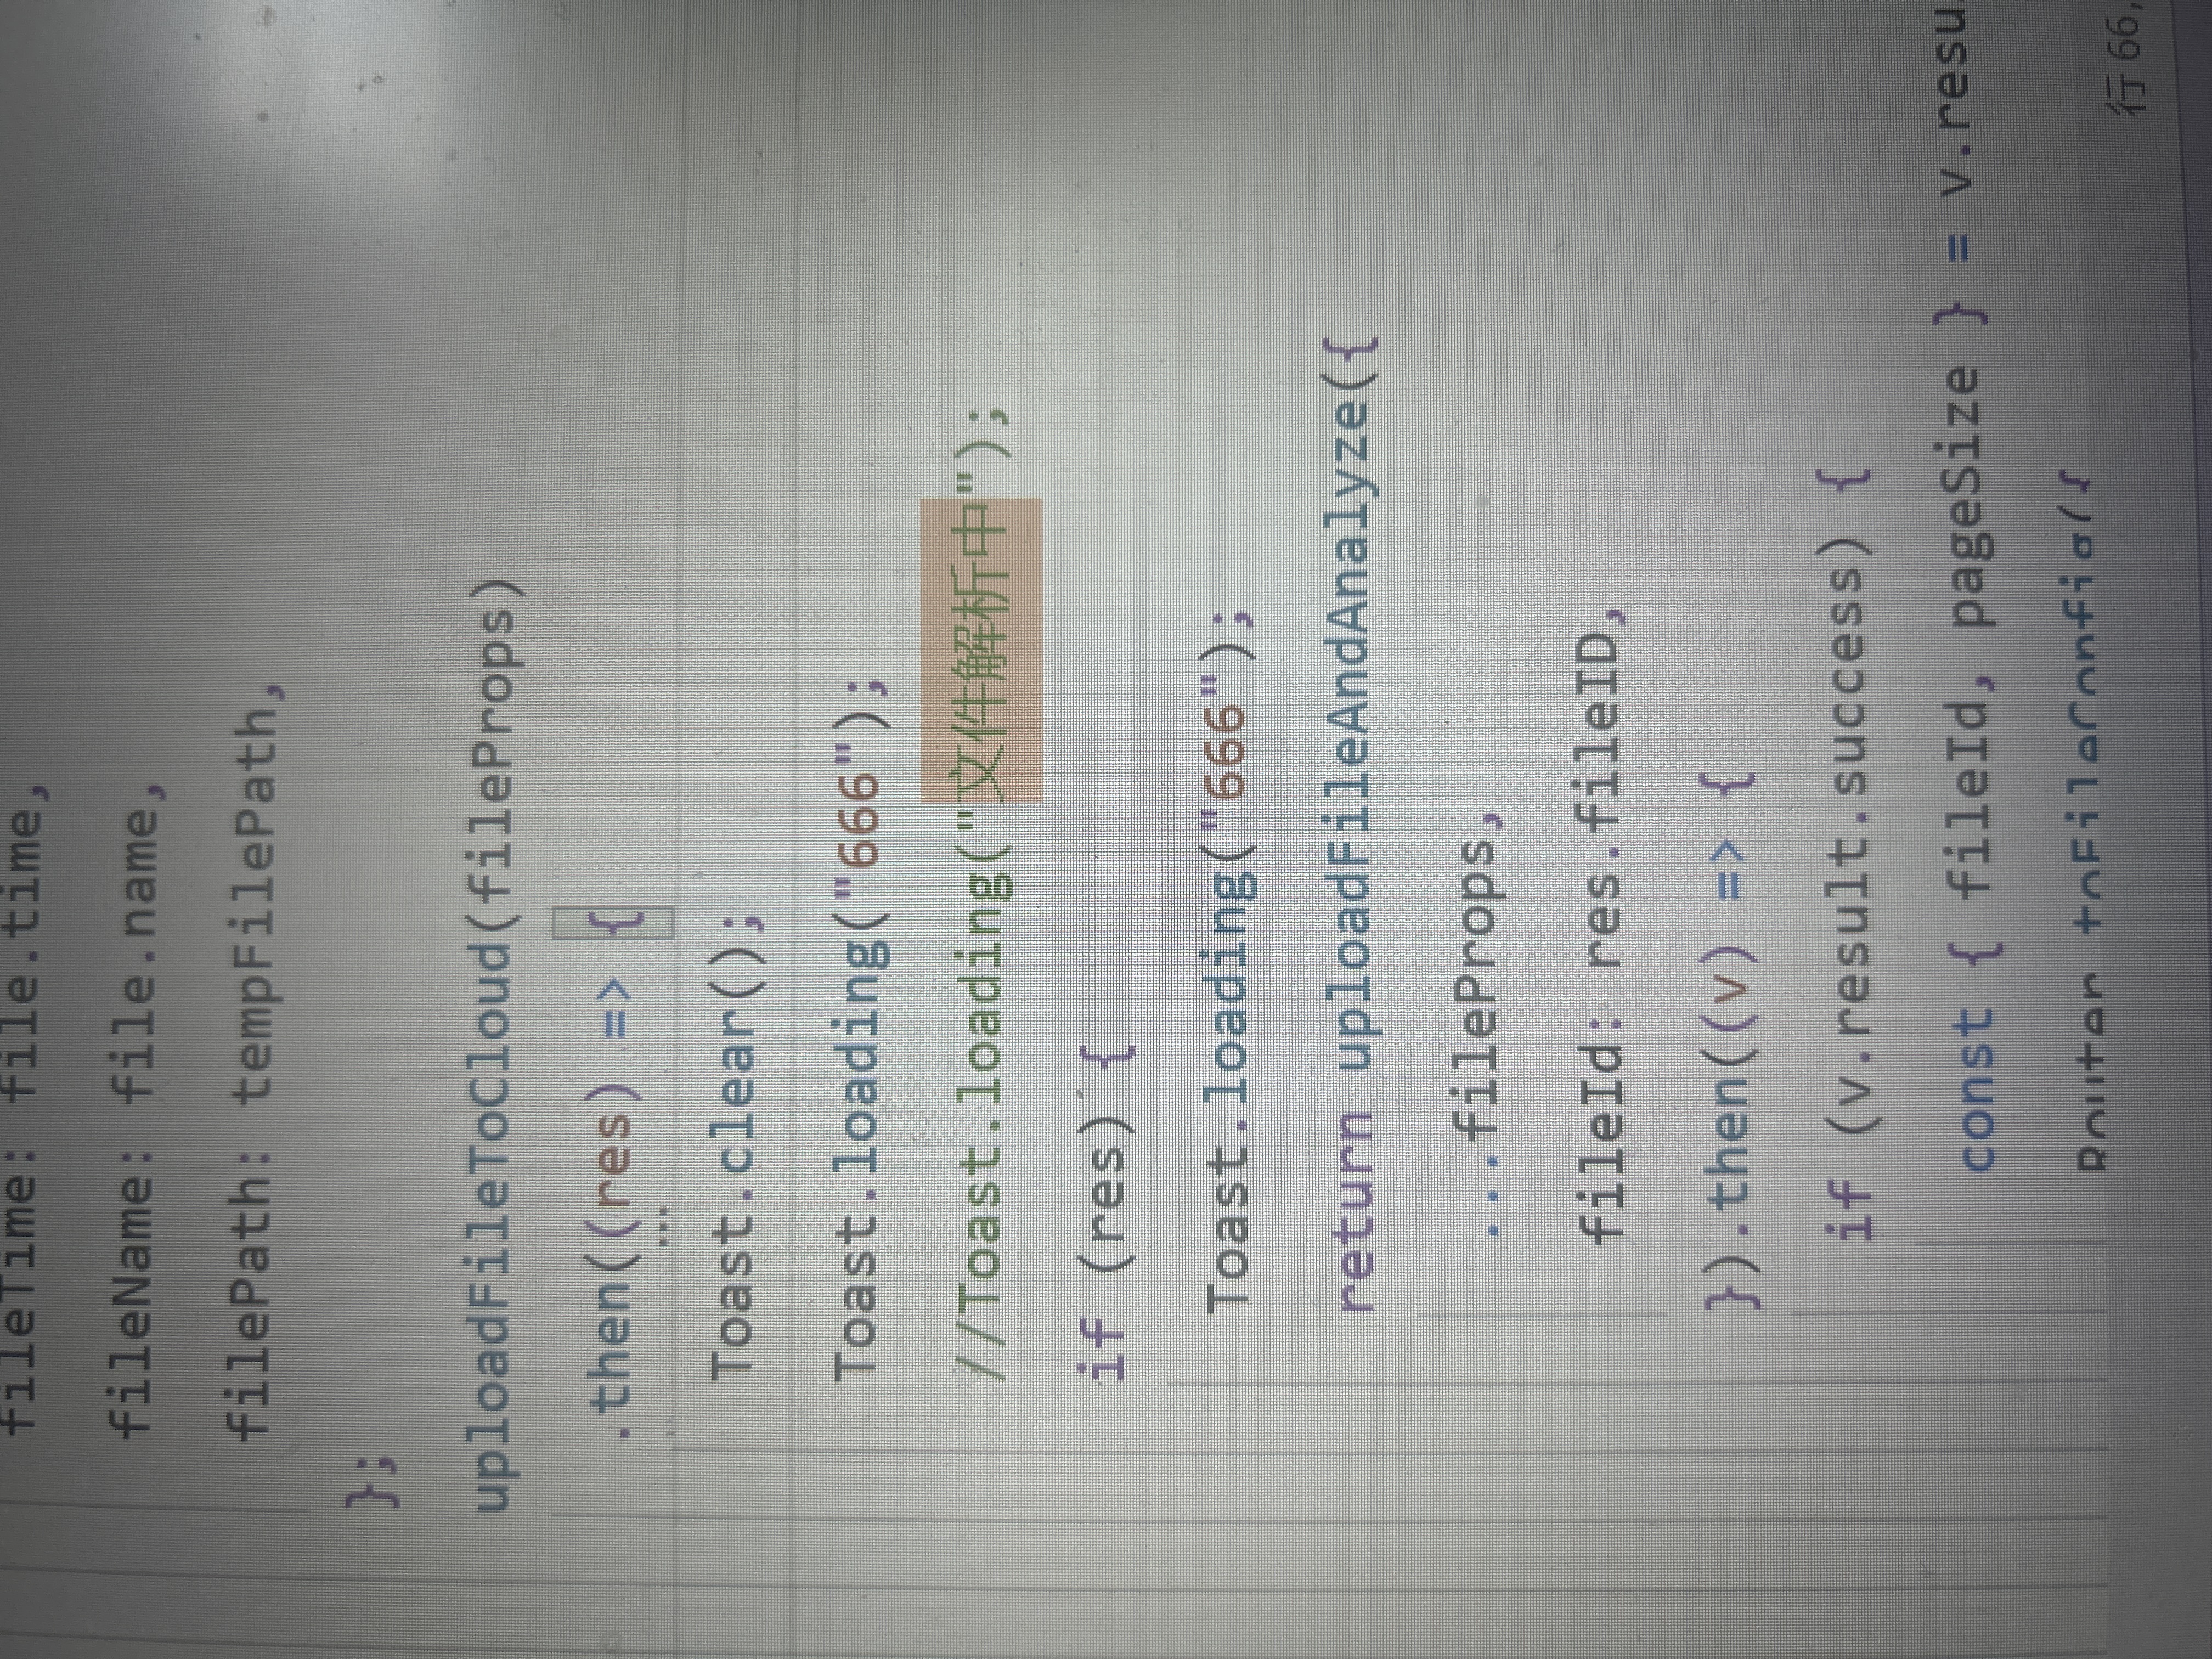 fileTime: file.time,
fileName: file.name,
filePath: tempFilePath,
};
uploadFileToCloud(fileProps)
.then((res) => {
Toast.clear();
Toast.loading("666");
//Toast.loading("文件解析中");
if (res) {
Toast.loading("666");
return uploadFileAndAnalyze({
...fileProps,
fileId: res.fileID,
}).then((v) => {
if (v.result.success) {
const { fileId, pageSize } = v.resu
Router.toFileConfig({
行 66,